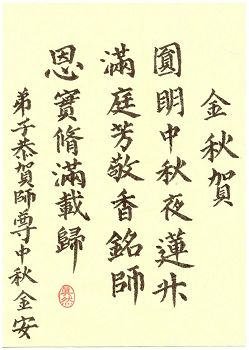 金秋賀
圓明中秋夜蓮升
滿庭芳敬香銘師
恩實脩滿載歸
弟子恭賀師尊中秋金安